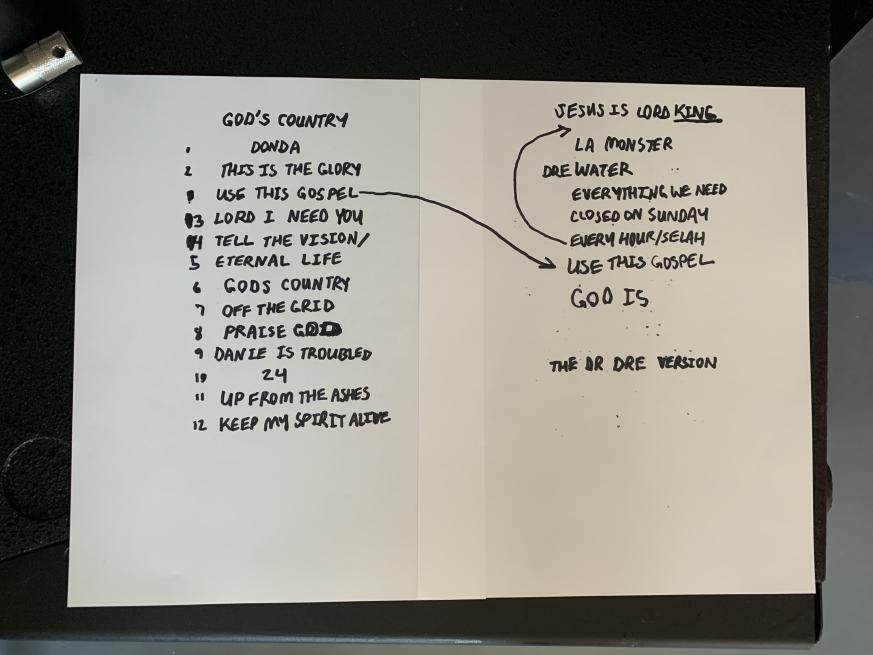 GOD'S COUNTRY
1 DONDA
2 THIS IS THE GLORY
USE THIS GOSPEL
3 LORD I NEED YOU
4 TELL THE VISION/
5 ETERNAL LIFE
6 GODS COUNTRY
7 OFF THE GRID
8 PRAISE GOD
9 DANIE IS TROUBLED
10 24
11 UP FROM THE ASHES
12 KEEP MY SPIRIT ALIVE
JESUS IS LORD KING
LA MONSTER
DRE WATER
EVERYTHING WE NEED
CLOSED ON SUNDAY
EVERY HOUR/SELAH
USE THIS GOSPEL
GOD IS
THE DR DRE VERSION